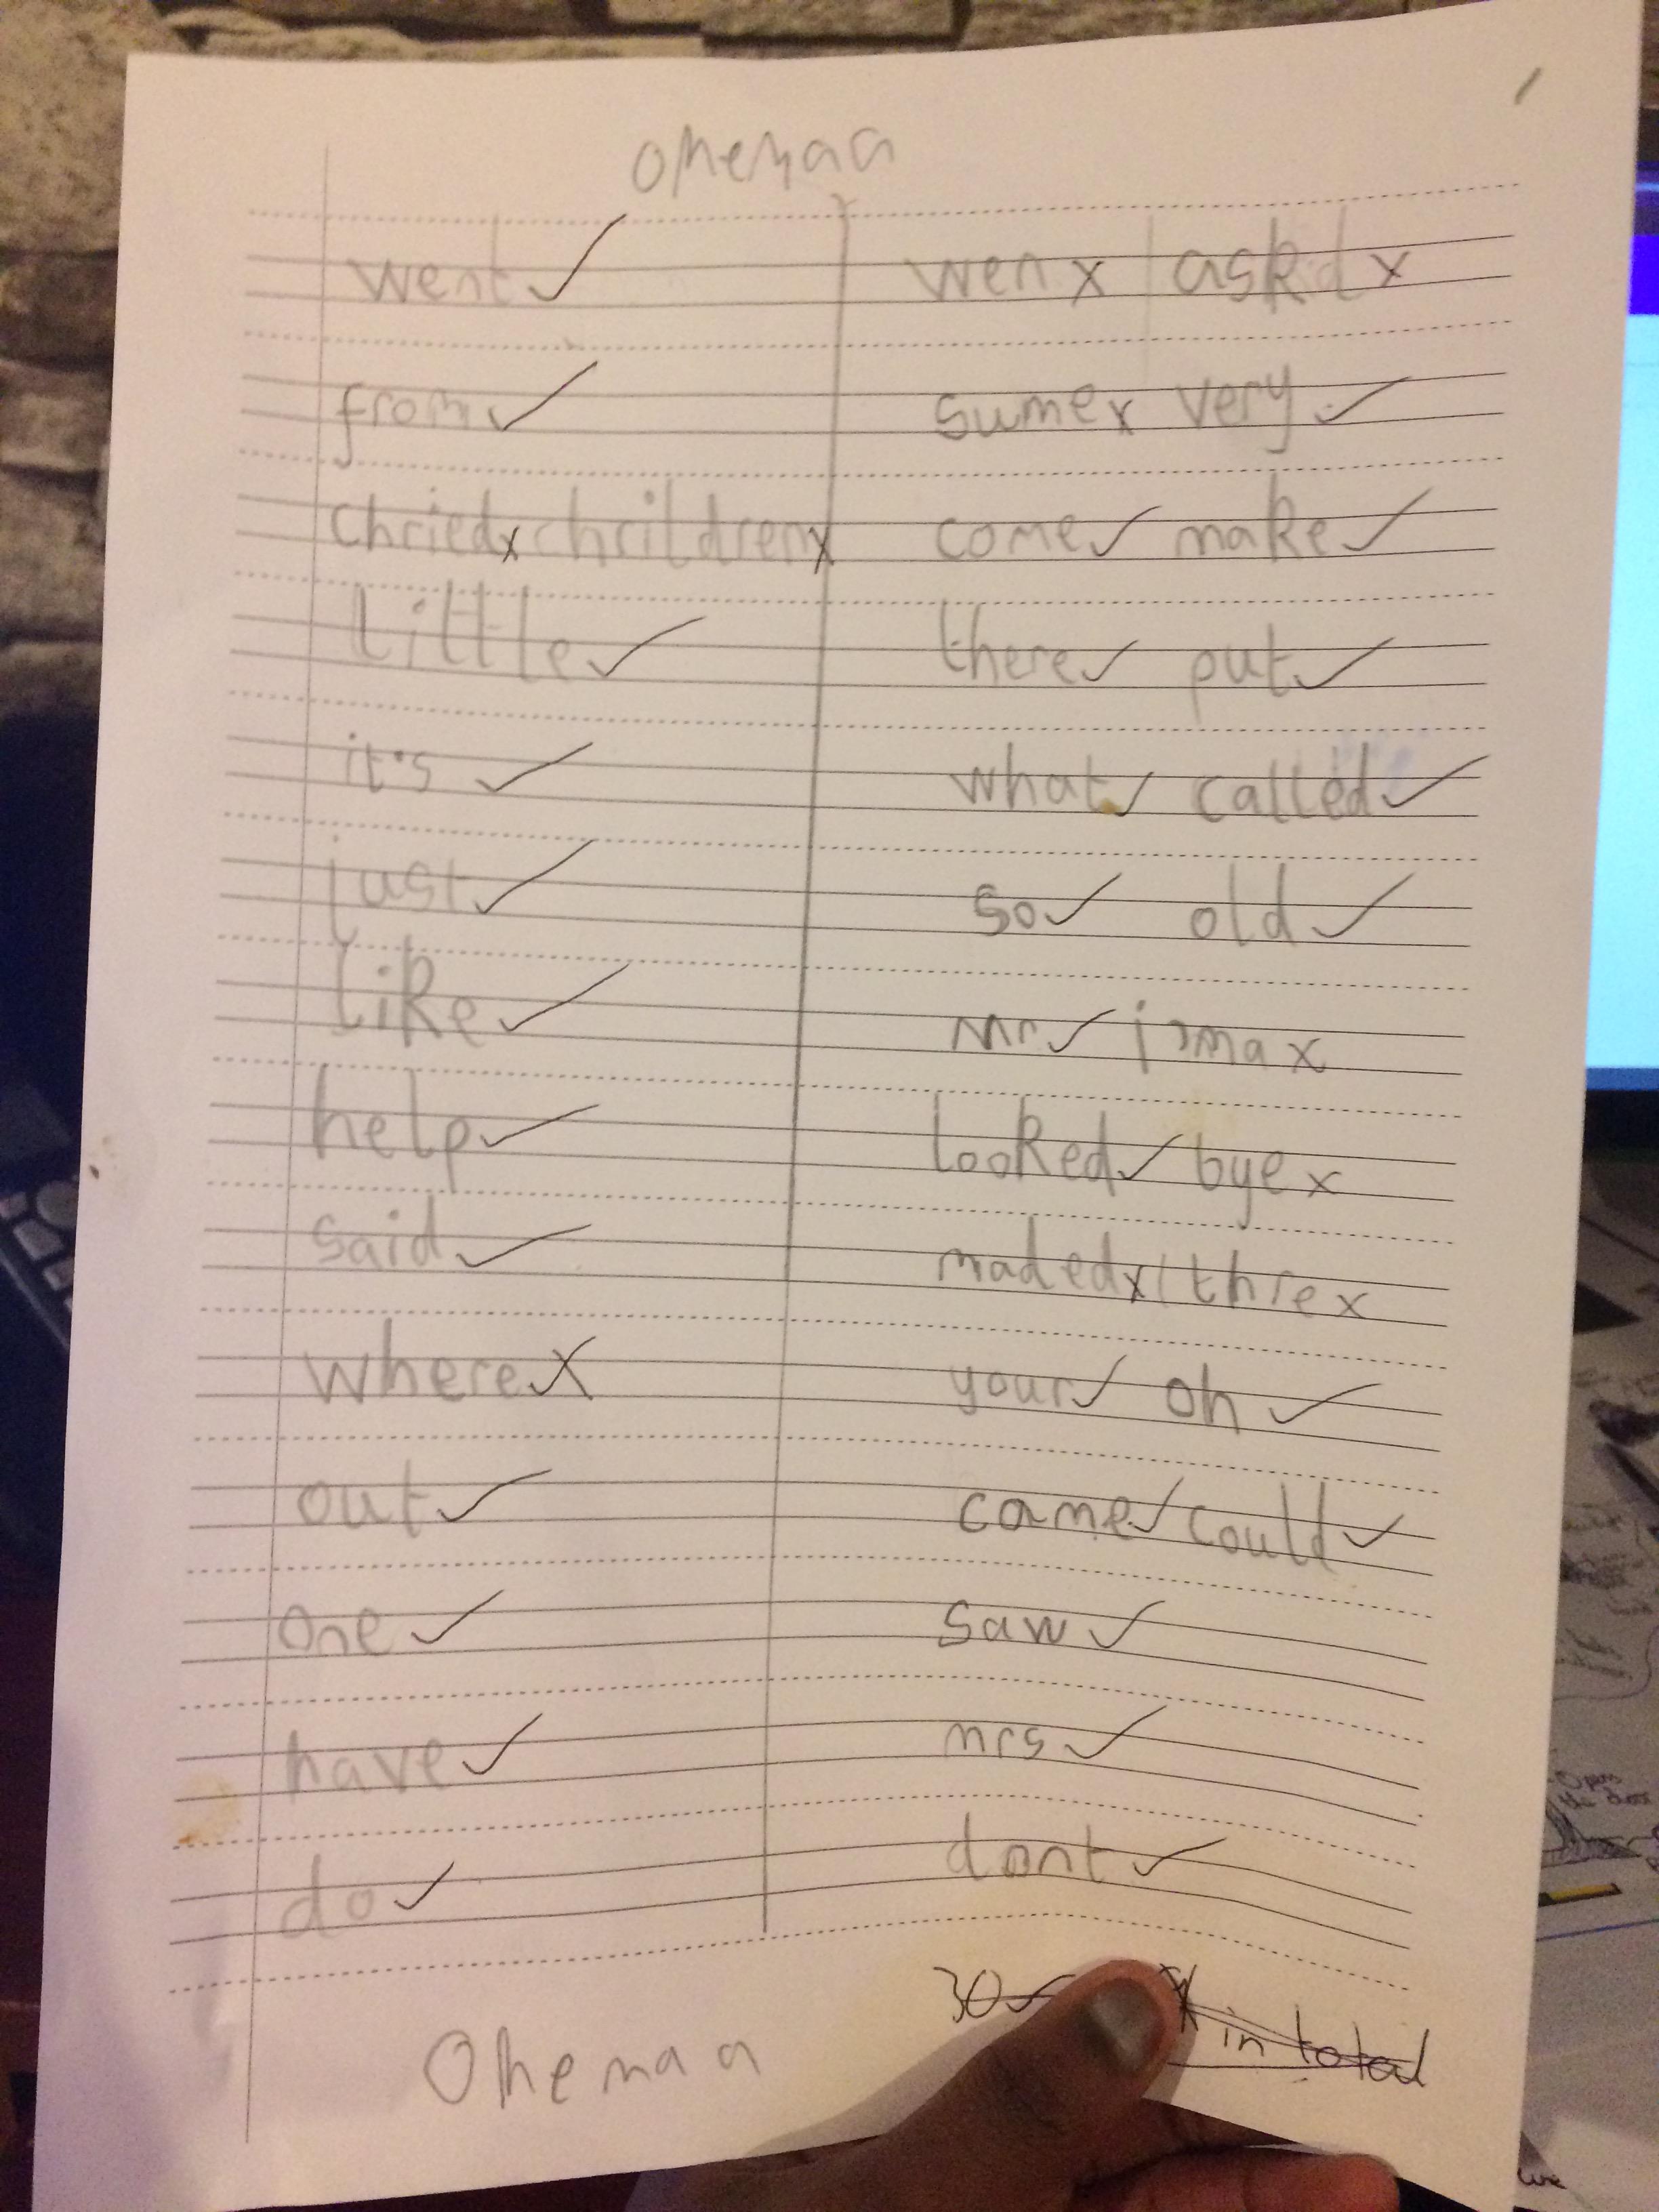 Ohemaa
went ✓ wen x | askd x
from ✓ sume x very ✓
chried x chrildren x come ✓ make ✓
Little ✓ there ✓ put ✓
it's ✓ what ✓ called ✓
just ✓ so ✓ old ✓
like ✓ mr ✓ x
help ✓ looked ✓ bye x
said ✓ maded x / thre x
where x your ✓ oh ✓
out ✓ came ✓ could ✓
one ✓ saw ✓
have ✓ mrs ✓
do ✓ dont ✓
30 ✓ in total
Ohemaa
Open
the door